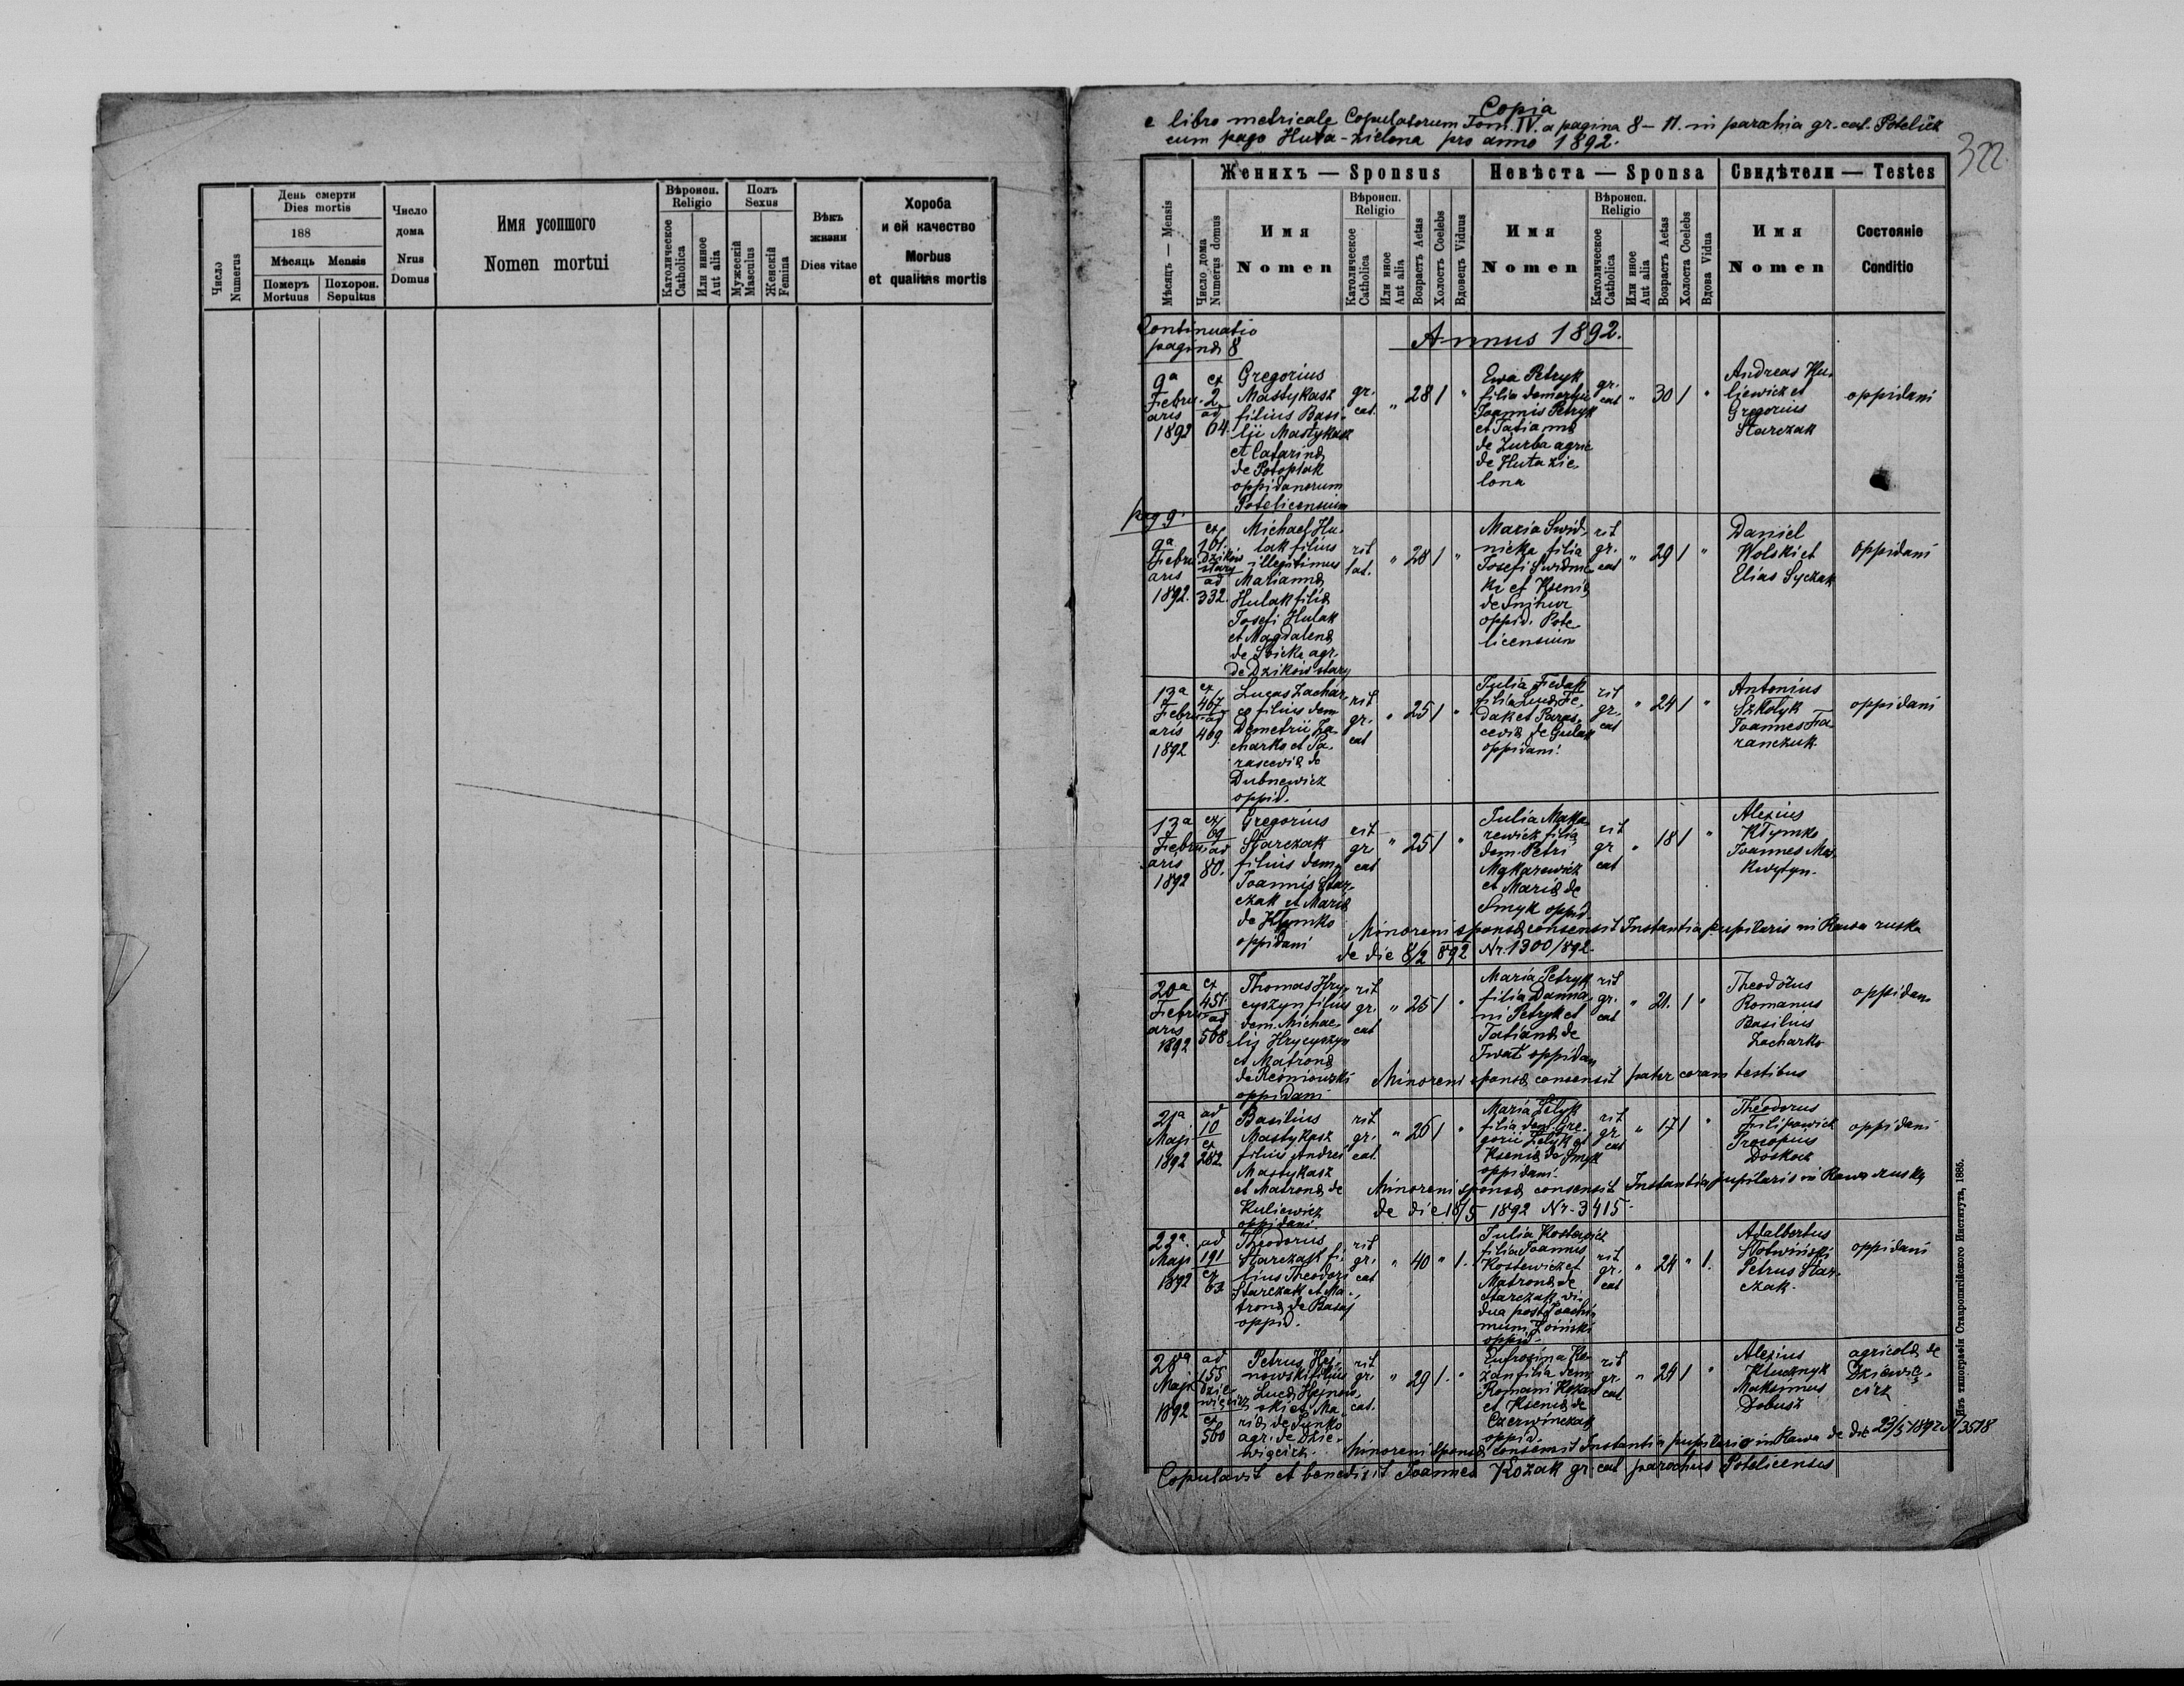 Число
Numerus
День смерти
Dies mortis
188
Мѣсяць Mensis
Померъ
Mortuus
Похорон.
Sepultus
Число
дома
Nrus
Domus
Имя усопшого
Nomen mortui
Вѣроисп.
Religio
Католическое
Catholica
Или инное
Aut alia
Полъ
Sexus
Мужескій
Masculus
Женскій
Femina
Вѣкъ
жизни
Dies vitae
Хороба
и ей качество
Morbus
et qualitas mortis
Copia
e libro metricale Copulatorum Tom. IV. a pagina 8-11. in parochia gr. cat. Potelicz
cum pago Huta-zielona pro anno 1892.
322.
Женихъ — Sponsus
Невѣста — Sponsa
Свидѣтели — Testes
Мѣсяцъ — Mensis
Число дома
Numerus domus
Имя
Nomen
Вѣроисп.
Religio
Католическое
Catholica
Или инное
Aut alia
Возрастъ Aetas
Холостъ Coelebs
Вдовецъ Viduus
Имя
Nomen
Вѣроисп.
Religio
Католическое
Catholica
Или инное
Aut alia
Возрастъ Aetas
Холоста Coelebs
Вдова Vidua
Имя
Nomen
Состояніе
Conditio
Continuatio
pagina 8
Annus 1892.
9ª
Febru-
aris
1892
ex
2
ad
64.
Gregorius
Mastykasz
filius Basi-
lii Mastykasz
et Catarina
de Potoplak
oppidanorum
Potelicensium
gr.
cat.
" 28 1 "
Ewa Petryk
filia demortui
Joannis Petryk
et Tatianna
de Zurba agric
de Huta zie-
lona
gr.
cat
" 30 1 "
Andreas Ku-
liewicz et
Gregorius
Starczak
oppidani
pag 9.
9ª
Febru
aris
1892.
ex
101.
Dzików
stary
ad
332.
Michael Hu-
lak filius
illegitimus
Marianna
Hulak filia
Josefi Hulak
et Magdalena
de Sвicka agr.
de Dzików stary
rit
lat.
" 28 1 "
Maria Swid-
nicka filia
Josefi Swidnic-
ki et Ksenia
de Snihur
oppid. Pote-
licensium
rit
gr.
cat
" 29 1 "
Daniel
Wolski et
Elias Syczak
oppidani
13ª
Febru
aris
1892
ex
467
ad
409
Lucas Zachar-
co filius dem
Demetrii Za-
charko et Pa-
rascevia de
Dubnewicz
oppid.
rit
gr.
cat
" 25 1 "
Julia Fedak
filia Luca Fe-
dak et Paras-
cevia de Gulak
oppidani.
rit
gr.
cat
" 24 1 "
Antonius
Szkolyk
Joannes Ta-
ranczuk
oppidani
13ª
Febru
aris
1892
ex
69
ad
80.
Gregorius
Starczak
filius dem.
Joannis Star-
czak et Maria
de Klymko
oppidani
rit
gr.
cat
" 25 1 "
Julia Maka-
rewicz filia
dem. Petri
Makarewicz
et Maria de
Smyk oppid.
rit
gr
cat
" 18 1 "
Alexius
Klymko
Joannes Mar-
Minoreni sponsa consensit Instantia pupilaris in Rawa ruska
de die 8/2 892 Nr. 1300/892.
20ª
Febru
aris
1892
ex
451.
ad
508
Thomas Hry-
cyszyn filius
dem. Michae-
lis Hrycyszyn
et Matrona
oppidani
rit
gr.
cat
" 25 1 "
Maria Petryk
filia Damia-
ni Petryk et
Tatiana de
Iwat oppidan
rit
gr.
cat
" 21. 1 "
Theodorus
Romanus
Basilius
Zacharko
oppidan
Minoreni sponsa consensit pater coram testibus
21ª
Maji
1892
ad
10
ex
282
Basilius
Mastykasz
filius Andrei
Mastykasz
et Matrona de
Kuliewicz
oppidani.
rit
gr.
cat.
" 26 1 "
Maria Lelyk
filia dem. Gre-
gorii Lelyk et
Ksenia de Smyk
oppidani.
rit
gr
cat
" 17 1 "
Theodorus
Filipowicz
Procopius
Doskocz
oppidani
Minoreni sponsa consensit Instantia pupilaris in Rawa ruska
de die 18/5 1892 Nr. 3415.
22ª.
Maji
1892
ad
191
ex
63
Theodorus
Starczak fi-
lius Theodori
Starczak et Ma-
trona de Basaj
oppid.
rit
gr.
cat
" 40 " 1.
Julia Kostewicz
filia Joannis
Kostewicz et
Matrona de
Starczak, vi-
dua post Joachi-
mum Zoinski
oppid.
rit
gr.
cat
" 24 " 1.
Adalbertus
Slotwinski
Petrus Star-
czak.
oppidani
28ª
Maji
1892
ad
155
Dzie-
więcirz
ex
560
Petrus Hej-
nowski filius
Luca Hejnow-
ski et Ma-
ria de Sunko
agr. de Dzie-
więcirz.
rit
gr.
cat.
" 29 1. "
Eufrozina Ko-
zan filia dem
Romani Kozan
et Ksenia de
Czerwinczak
oppid.
rit
gr.
cat
" 24 1 "
Alexius
Klucznyk
Maksymus
Dobusz
agricola de
Dziewię-
cirz
Minoreni Sponsa Consensit Instantia pupilaris in Rawa de die 23/5 1892 N 3518
Copulavit et benedixit Joannes Kozak gr. cat parochus Potelicensis
Изъ типографіи Ставропигійского Института, 1885.